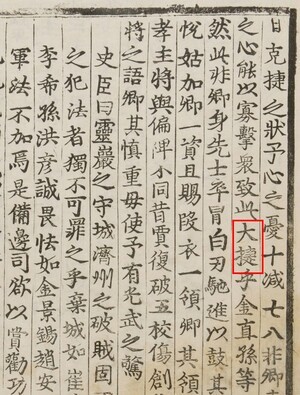 日克捷之狀予心之憂十減七八非卿
之心能以寡擊衆致此大捷乎金直孫等
然此非卿身先士卒冒白刃馳進以鼓其
忱姑加卿一資且賜段衣一領卿其領
孝主將與偏裨小同昔賈復破五校傷創
將之語卿其愼重毋使予有光武之驚
史臣曰靈巖之守城濟州之破賊固
之犯法者獨不可罪之乎棄城如崔
李希孫洪彦誠畏怯如金景錫趙安
軍法不加焉是備邊司欲以賞勸功